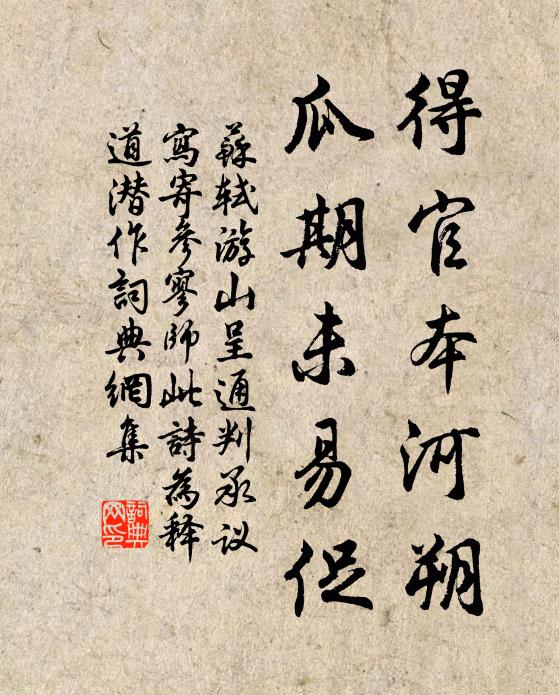 得官本河朔
瓜期未易促
蘇軾游山呈通判承议
寫寄参寥師此詩為释
道潜作詞典網集
詞典网印